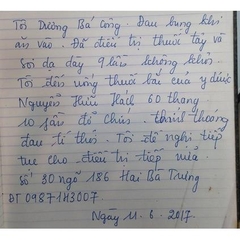 Tôi Dương Bá Công. Đau bụng khi
ăn vào. Đã điều trị thuốc tây và
Soi dạ dày 9 lần không khỏi.
Tôi đến uống thuốc bắc của y dược
Nguyễn Hữu Hách 60 thang
10 lần đỡ Chứ thoảng
đau tí thôi. Tôi đề nghị tiếp
tục cho điều trị tiếp nữa.
số 30 ngõ 186 Hai Bà Trưng
ĐT 0987143007.
Ngày 11.6.2017